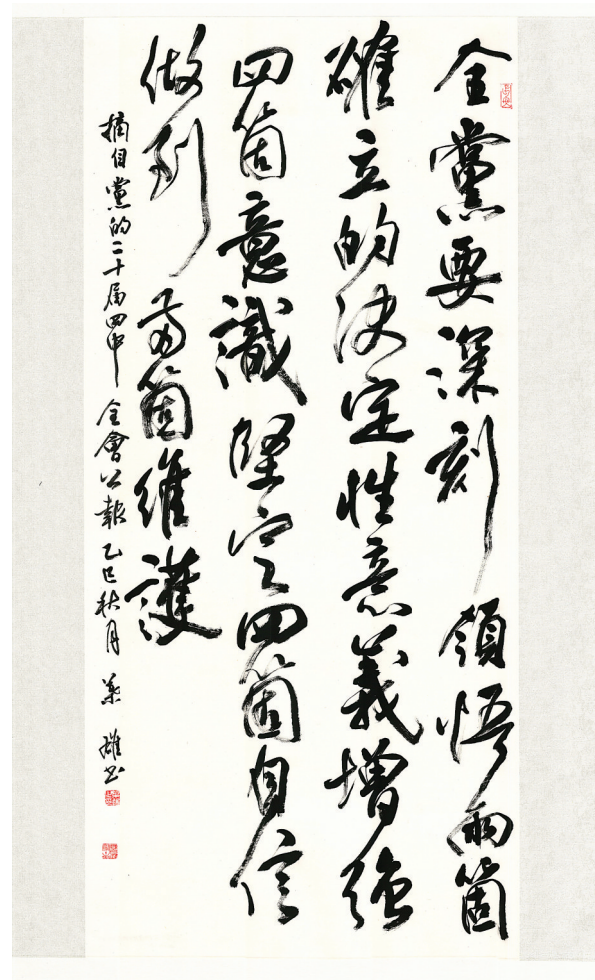 全黨要深刻領悟兩箇
確立的決定性意義增強
四箇意識堅定四箇自信
做到兩箇維護
摘自黨的二十屆四中全會公報乙巳秋月葉雄書